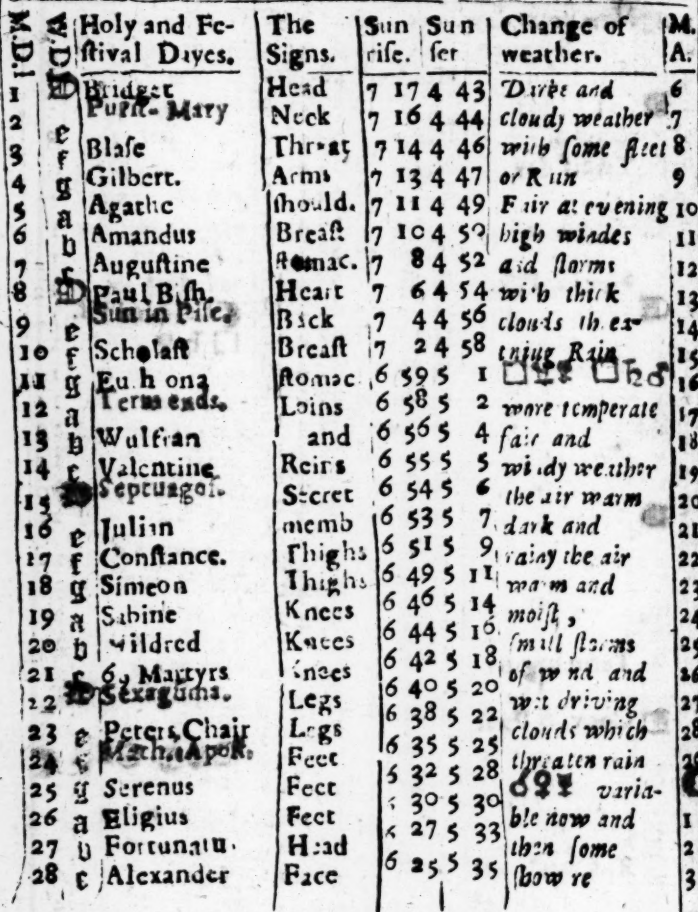 M.D. W.D. Holy and Fe- The Sun Sun Change of M.
ſtival Dayes. Signs. riſe. ſet weather. A.
1 D Bridget Head 7 17 4 43 Darke and 6
2 e Purif. Mary Neck 7 16 4 44 cloudy weather 7
3 f Blaſe Throat 7 14 4 46 with ſome ſleet 8
4 g Gilbert. Arms 7 13 4 47 or Rain 9
5 a Agathe ſhould. 7 11 4 49 Fair at evening 10
6 b Amandus Breaſt 7 10 4 50 high windes 11
7 c Auguſtine ſtomac. 7 8 4 52 and ſtorms 12
8 D Paul Biſh. Heart 7 6 4 54 with thick 13
9 e Sun in Piſc. Back 7 4 4 56 clouds th. ex- 14
10 f Scholaſt Breaſt 7 2 4 58 Rain 15
11 g Eu.h ona ſtomac 6 59 5 1 □ ☿ ☿ □ ♄ ♂ 16
12 a Term ends. Loins 6 58 5 2 more temperate 17
13 b Wulfran and 6 56 5 4 fair and 18
14 c Valentine Reins 6 55 5 5 windy weather 19
15 D Septuageſ. Secret 6 54 5 6 the air warm 20
16 e Julian memb 6 53 5 7 dark and 21
17 f Conſtance. Thighs 6 51 5 9 rainy the air 22
18 g Simeon Thighs 6 49 5 11 warm and 23
19 a Sabine Knees 6 46 5 14 moiſt, 24
20 b Mildred Knees 6 44 5 16 ſmall ſtorms 25
21 c Martyrs Knees 6 42 5 18 of wind and 26
22 D Sexageſima. Legs 6 40 5 20 wet driving 27
23 e Peters Chair Legs 6 38 5 22 clouds which 28
24 f Math. Apoſt. Feet 6 35 5 25 threaten rain 29
25 g Serenus Feet 6 32 5 28 ♂ ♀ ☿ varia-
26 a Eligius Feet 6 30 5 30 ble now and 1
27 b Fortunatu. Head 6 27 5 33 then ſome 2
28 c Alexander Face 6 25 5 35 ſhowre 3